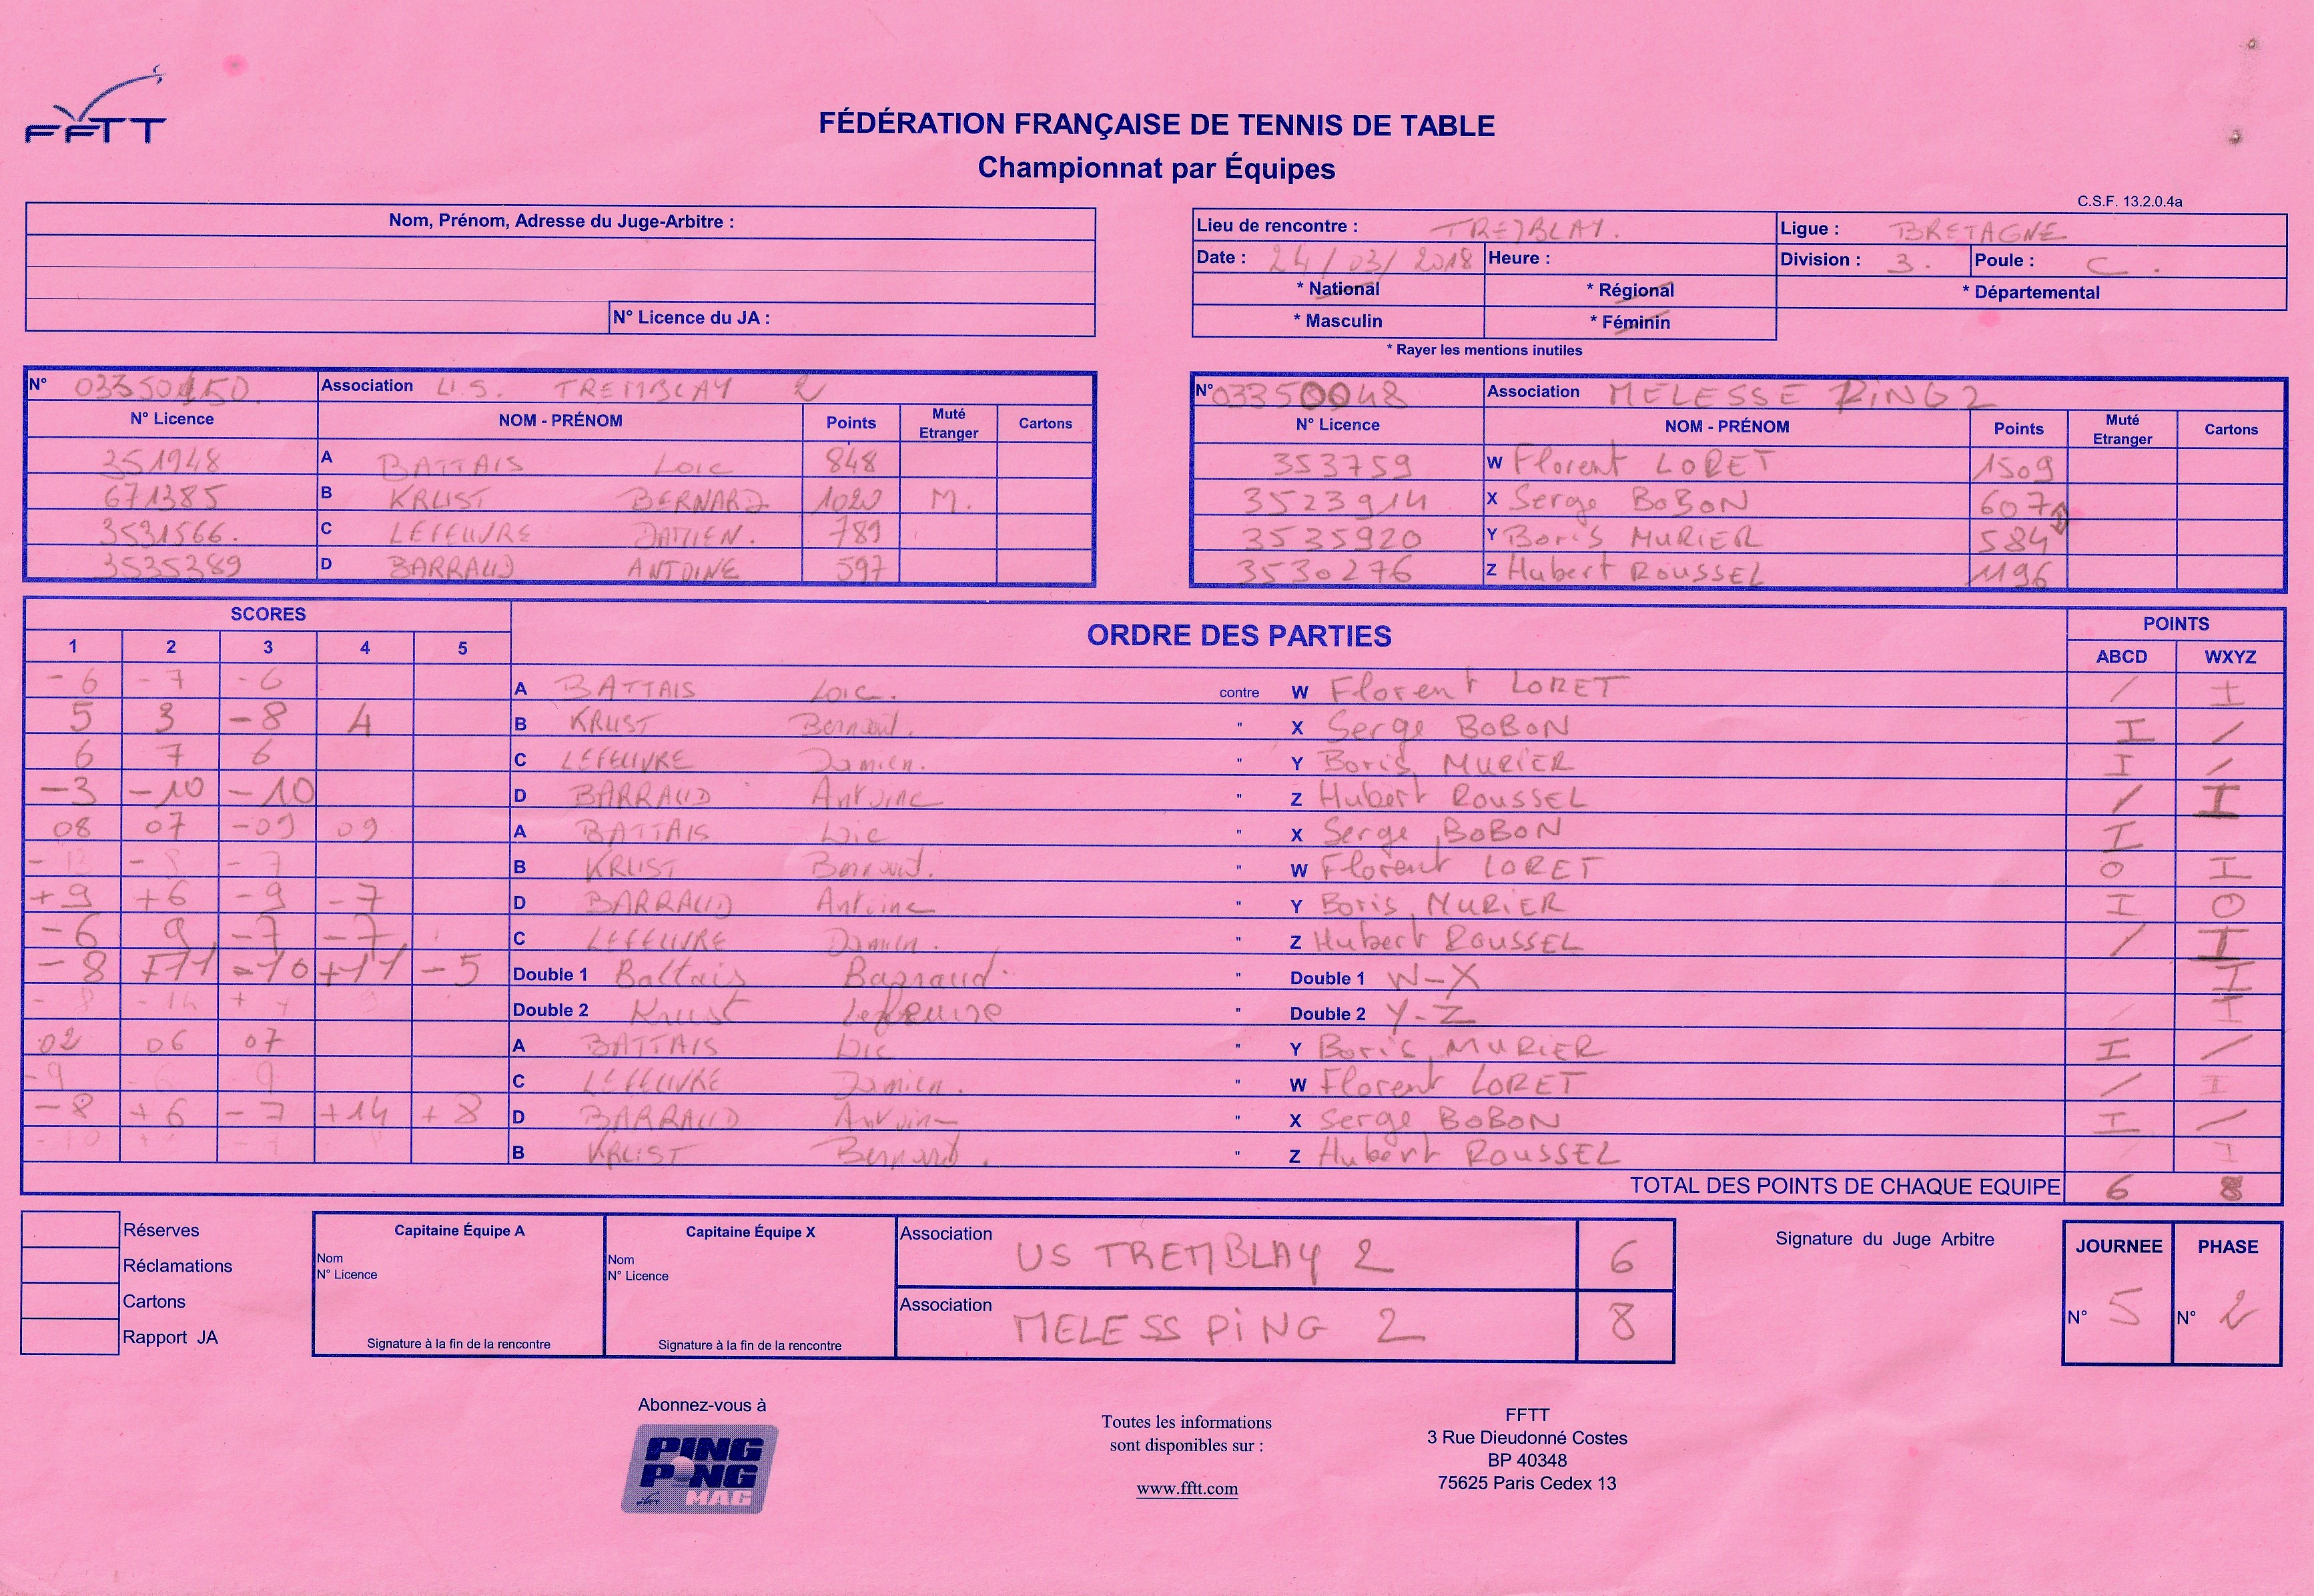 FFTT
FÉDÉRATION FRANÇAISE DE TENNIS DE TABLE
Championnat par Équipes
C.S.F. 13.2.0.4a
Nom, Prénom, Adresse du Juge-Arbitre :
N° Licence du JA :
Lieu de rencontre : TREMBLAY. Ligue : BRETAGNE
Date : 24/03/2018 Heure : Division : 3. Poule : C.
* National * Régional * Départemental
* Masculin * Féminin
* Rayer les mentions inutiles
N° 03350150. Association U.S. TREMBLAY 2
N° Licence NOM - PRÉNOM Points Muté Etranger Cartons
351948 A BATTAIS LOIC 848
671385 B KRUST BERNARD 1020 M.
3531566. C LEFEUVRE DAMIEN. 789
3535389 D BARRAUD ANTOINE 597
N° 03350048 Association MELESSE PING 2
N° Licence NOM - PRÉNOM Points Muté Etranger Cartons
353759 W Florent LORET 1509
3523914 X Serge BOBON 607
3535920 Y Boris MURIER 584
3530276 Z Hubert ROUSSEL 1196
SCORES ORDRE DES PARTIES POINTS
1 2 3 4 5 ABCD WXYZ
-6 -7 -6 A BATTAIS Loic. contre W Florent LORET / I
5 3 -8 4 B KRUST Bernard. " X Serge BOBON I /
6 7 6 C LEFEUVRE Damien. " Y Boris MURIER I /
-3 -10 -10 D BARRAUD Antoine " Z Hubert ROUSSEL / I
08 07 -09 09 A BATTAIS Loic " X Serge BOBON I
- - -7 B KRUST Bernard. " W Florent LORET O I
+9 +6 -9 -7 D BARRAUD Antoine " Y Boris MURIER I O
-6 9 -7 -7 C LEFEUVRE Damien. " Z Hubert ROUSSEL / I
-8 +11 -10 +11 -5 Double 1 Battais Barraud. " Double 1 W-X I
-8 -14 + Double 2 Krust Lefeuvre " Double 2 Y-Z I
02 06 07 A BATTAIS Loic " Y Boris MURIER I /
-9 -6 9 C LEFEUVRE Damien. " W Florent LORET / I
-8 +6 -7 +14 +8 D BARRAUD Antoine " X Serge BOBON I /
-10 B KRUST Bernard. " Z Hubert ROUSSEL I
TOTAL DES POINTS DE CHAQUE EQUIPE 6 8
Réserves
Réclamations
Cartons
Rapport JA
Capitaine Équipe A
Nom
N° Licence
Signature à la fin de la rencontre
Capitaine Équipe X
Nom
N° Licence
Signature à la fin de la rencontre
Association US TREMBLAY 2 6
Association MELESS PING 2 8
Signature du Juge Arbitre
JOURNEE PHASE
N° 5 N° 2
Abonnez-vous à
PING
PONG
MAG
FFTT
Toutes les informations
sont disponibles sur :
www.fftt.com
FFTT
3 Rue Dieudonné Costes
BP 40348
75625 Paris Cedex 13